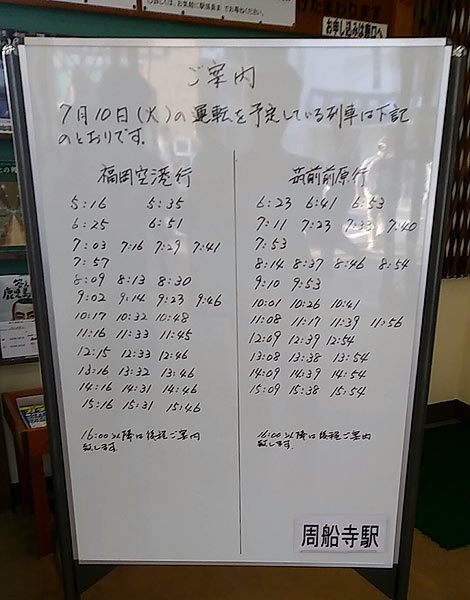 お気軽に駅係員まで お尋ねください。
お申し込みは窓口へ
ご案内
7月10日(火)の運転を予定している列車は下記
のとおりです。
福岡空港行
5:16 5:35
6:25 6:51
7:03 7:16 7:29 7:41
7:57
8:09 8:13 8:30
9:02 9:14 9:23 9:46
10:17 10:32 10:48
11:16 11:33 11:45
12:15 12:33 12:46
13:16 13:32 13:46
14:16 14:31 14:46
15:16 15:31 15:46
16:00以降は後程ご案内
致します。
筑前前原行
6:23 6:41 6:53
7:11 7:23 7:33 7:40
7:53
8:14 8:37 8:46 8:54
9:10 9:53
10:01 10:26 10:41
11:08 11:17 11:39 11:56
12:09 12:39 12:54
13:08 13:38 13:54
14:09 14:39 14:54
15:09 15:38 15:54
16:00以降は後程ご案内
致します。
周船寺駅